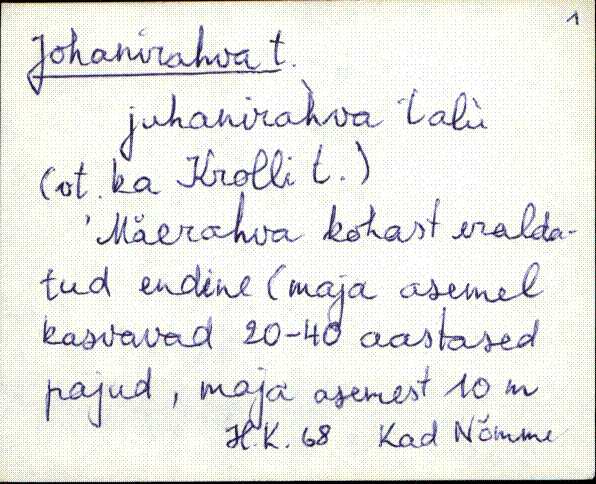 1
Johanirahva t.
juhanirahva talu
(vt. ka Krolli t.)
Mäerahva kohast eralda-
tud endine (maja asemel
kasvavad 20-40 aastased
pajud, maja asemest 10 m
H.K. 68 Kad Nõmme